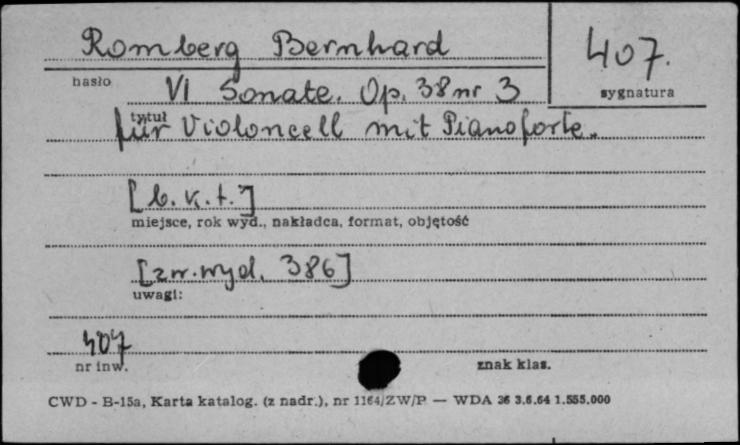 Romberg Bernhard
407.
hasło
sygnatura
VI Sonate. Op. 38 nr 3
tytuł
für Violoncell mit Pianoforte.
[b. k. t.]
miejsce, rok wyd., nakładca, format, objętość
[zw. wyd. 386]
uwagi:
407
nr inw.
znak klas.
CWD - B-15a, Karta katalog. (z nadr.), nr 1164/ZW/P — WDA 36 3.6.64 1.555.000